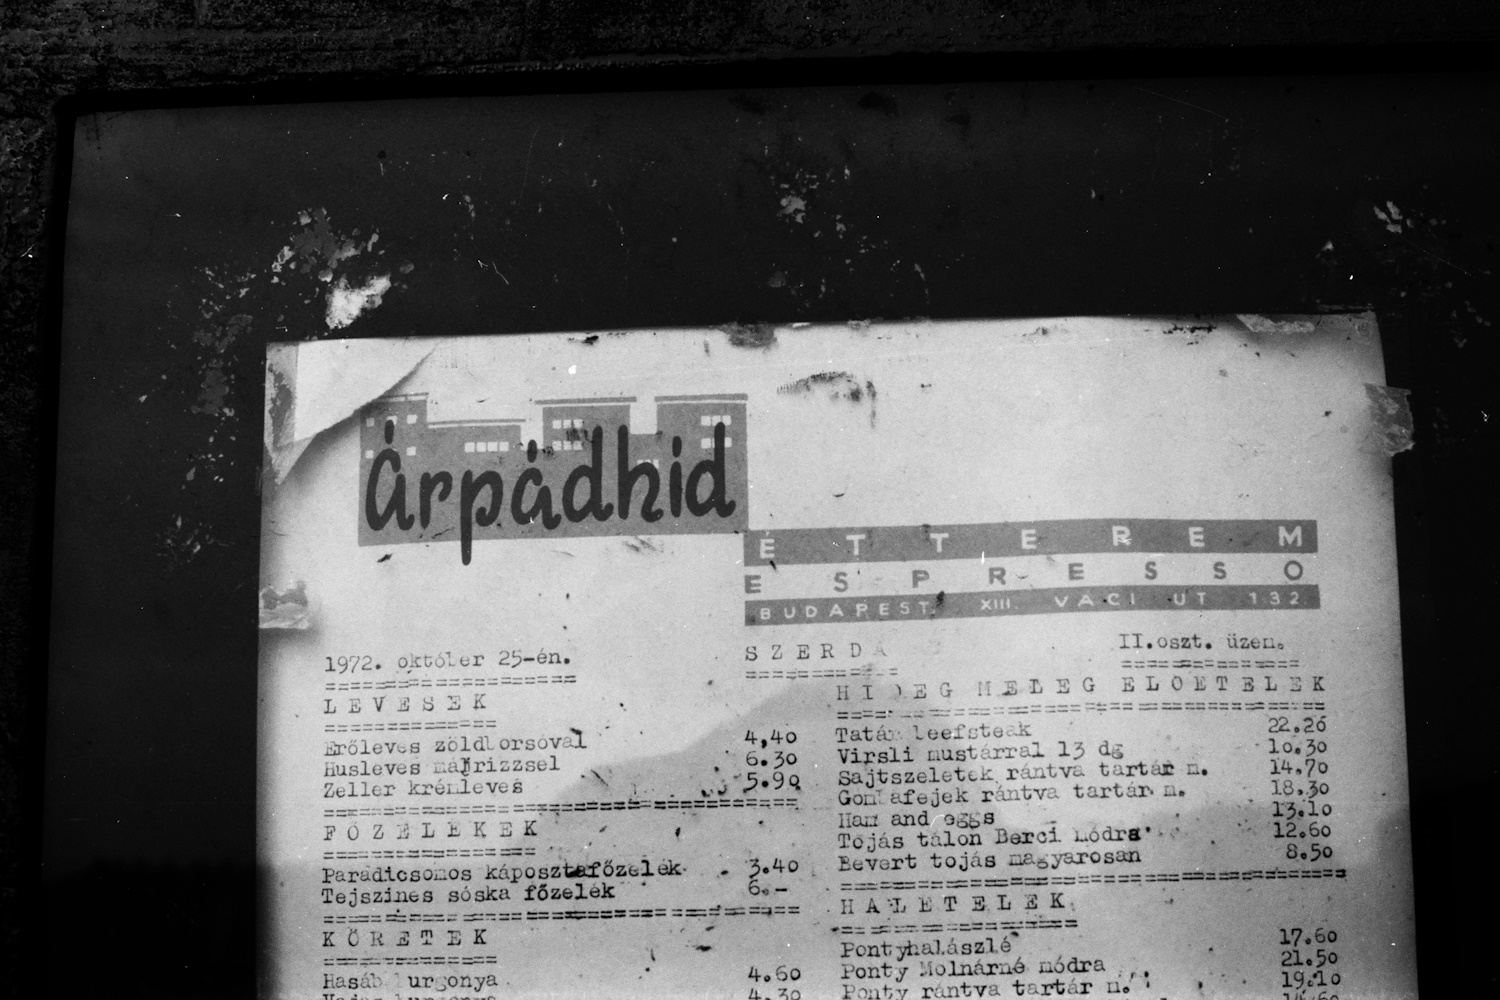 Árpádhid
ÉTTEREM
ESPRESSO
BUDAPEST. XIII. VÁCI UT 132.
1972. október 25-én.
SZERDA
II.oszt. üzem.
LEVESEK
Erőleves zöldborsóval 4,40
Husleves májrizzsel 6.30
Zeller krémleves 5.90
FŐZELEKEK
Paradicsomos káposztafőzelék 3.40
Tejszines sóska főzelék 6.-
KÖRETEK
Hasáb burgonya 4.60
4.30
HIDEG MELEG ELOETELEK
Tatár beefsteak 22.20
Virsli mustárral 13 dg 10.30
Sajtszeletek rántva tartár m. 14.70
Gombafejek rántva tartár m. 18.30
Ham and eggs 13.10
Tojás tálon Berci módra 12.60
Bevert tojás magyarosan 8.50
HALETELEK
Pontyhalászlé 17.60
Ponty Molnárné módra 21.50
Ponty rántva tartár m. 19.10